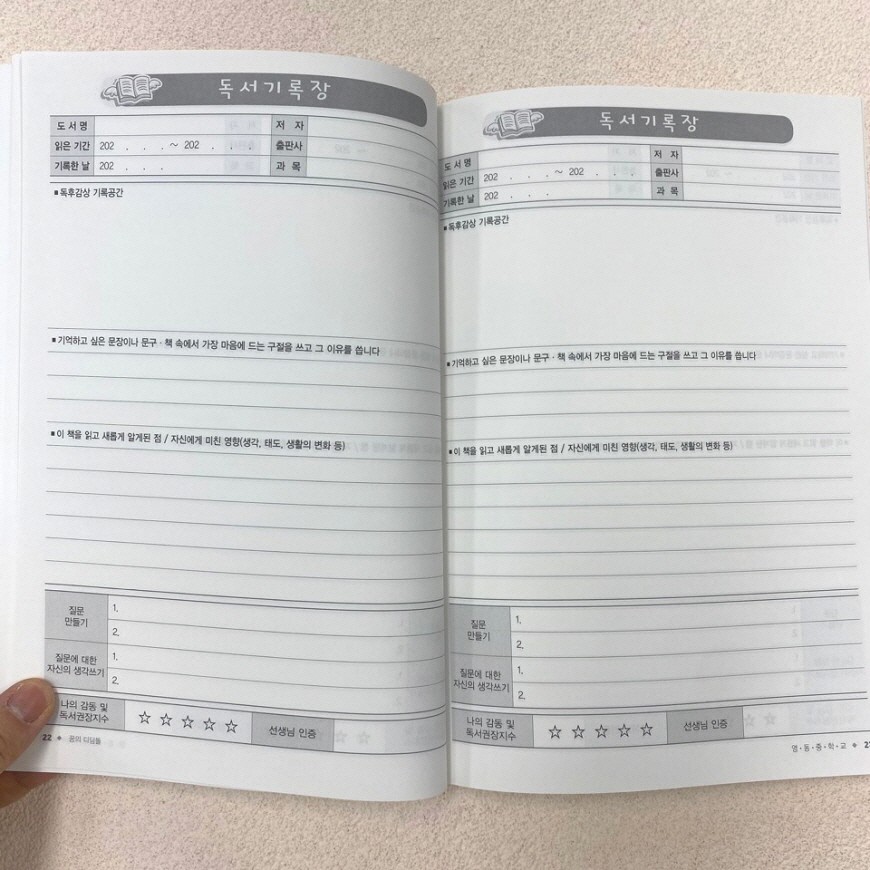 독서기록장
도 서 명
저 자
읽은 기간 202 . . . ~ 202 . . .
출판사
기록한 날 202 . . .
과 목
■ 독후감상 기록공간
■ 기억하고 싶은 문장이나 문구 · 책 속에서 가장 마음에 드는 구절을 쓰고 그 이유를 씁니다
■ 이 책을 읽고 새롭게 알게된 점 / 자신에게 미친 영향(생각, 태도, 생활의 변화 등)
질문
만들기
1.
2.
질문에 대한
자신의 생각쓰기
1.
2.
나의 감동 및
독서권장지수
☆ ☆ ☆ ☆ ☆
선생님 인증
22 ● 꿈의 디딤돌
독서기록장
도 서 명
저 자
읽은 기간 202 . . . ~ 202 . . .
출판사
기록한 날 202 . . .
과 목
■ 독후감상 기록공간
■ 기억하고 싶은 문장이나 문구 · 책 속에서 가장 마음에 드는 구절을 쓰고 그 이유를 씁니다
■ 이 책을 읽고 새롭게 알게된 점 / 자신에게 미친 영향(생각, 태도, 생활의 변화 등)
질문
만들기
1.
2.
질문에 대한
자신의 생각쓰기
1.
2.
나의 감동 및
독서권장지수
☆ ☆ ☆ ☆ ☆
선생님 인증
영·동·중·학·교 ●